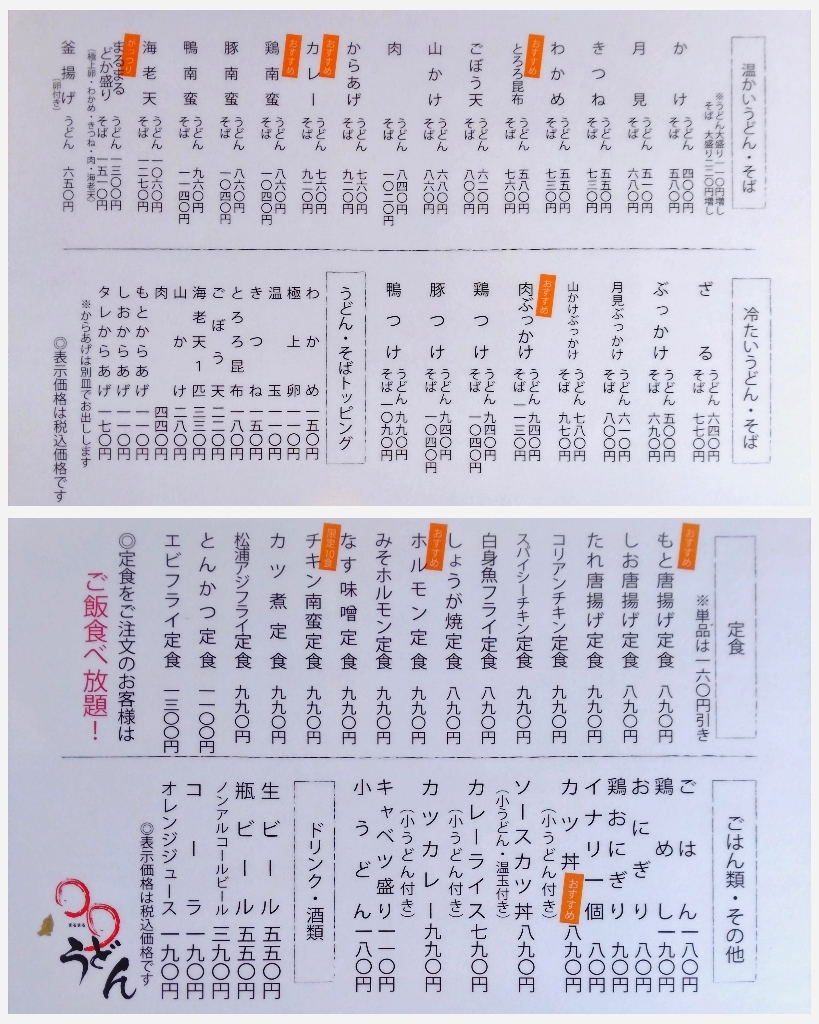 温かいうどん・そば
※うどん大盛り一一〇円増し
そば 大盛り二二〇円増し
かけ うどん 四〇〇円
そば 五八〇円
月見 うどん 五一〇円
そば 六八〇円
きつね うどん 五五〇円
そば 七三〇円
わかめ うどん 五五〇円
そば 七三〇円
おすすめ
とろろ昆布 うどん 五八〇円
そば 七六〇円
ごぼう天 うどん 六二〇円
そば 八〇〇円
山かけ うどん 六八〇円
そば 八六〇円
肉 うどん 八四〇円
そば 一〇二〇円
からあげ うどん 七六〇円
そば 九二〇円
おすすめ
カレー うどん 七六〇円
そば 九二〇円
おすすめ
鶏南蛮 うどん 八六〇円
そば 一〇四〇円
豚南蛮 うどん 八六〇円
そば 一〇四〇円
鴨南蛮 うどん 九六〇円
そば 一一四〇円
海老天 うどん 一〇六〇円
そば 一二七〇円
がっつり
まるまるどか盛り うどん 一三〇〇円
そば 一五一〇円
(極上卵・わかめ・きつね・肉・海老天)
釜揚げ うどん 六五〇円
(卵付き)
冷たいうどん・そば
ざる うどん 六四〇円
そば 七七〇円
ぶっかけ うどん 五〇〇円
そば 六九〇円
月見ぶっかけ うどん 六一〇円
そば 八〇〇円
山かけぶっかけ うどん 七八〇円
そば 九七〇円
おすすめ
肉ぶっかけ うどん 九四〇円
そば 一一三〇円
鶏つけ うどん 九四〇円
そば 一〇四〇円
豚つけ うどん 九四〇円
そば 一〇四〇円
鴨つけ うどん 九九〇円
そば 一〇九〇円
うどん・そばトッピング
わかめ 一五〇円
極上卵 一一〇円
温玉 一一〇円
きつね 一五〇円
とろろ昆布 一八〇円
ごぼう天 二二〇円
海老天1匹 三三〇円
山かけ 二八〇円
肉 四四〇円
もとからあげ 一一〇円
しおからあげ 一一〇円
タレからあげ 一七〇円
※からあげは別皿でお出しします
◎表示価格は税込価格です
定食
※単品は一六〇円引き
おすすめ
もと唐揚げ定食 八九〇円
しお唐揚げ定食 八九〇円
たれ唐揚げ定食 九九〇円
コリアンチキン定食 九九〇円
スパイシーチキン定食 九九〇円
白身魚フライ定食 八九〇円
しょうが焼定食 八九〇円
おすすめ
ホルモン定食 九九〇円
みそホルモン定食 九九〇円
なす味噌定食 九九〇円
限定10食
チキン南蛮定食 九九〇円
カツ煮定食 九九〇円
松浦アジフライ定食 九九〇円
とんかつ定食 一一〇〇円
エビフライ定食 一三〇〇円
◎定食をご注文のお客様は
ご飯食べ放題!
ごはん類・その他
ごはん 一八〇円
鶏めし 一九〇円
おにぎり 八〇円
鶏おにぎり 九〇円
イナリ一個 八〇円
カツ丼 おすすめ 八九〇円
(小うどん付き)
ソースカツ丼 八九〇円
(小うどん・温玉付き)
カレーライス 七九〇円
(小うどん付き)
カツカレー 九九〇円
(小うどん付き)
キャベツ盛り 一一〇円
小うどん 一八〇円
ドリンク・酒類
生ビール 五五〇円
瓶ビール 五五〇円
ノンアルコールビール 三九〇円
コーラ 一九〇円
オレンジジュース 一九〇円
◎表示価格は税込価格です
まるまる
うどん